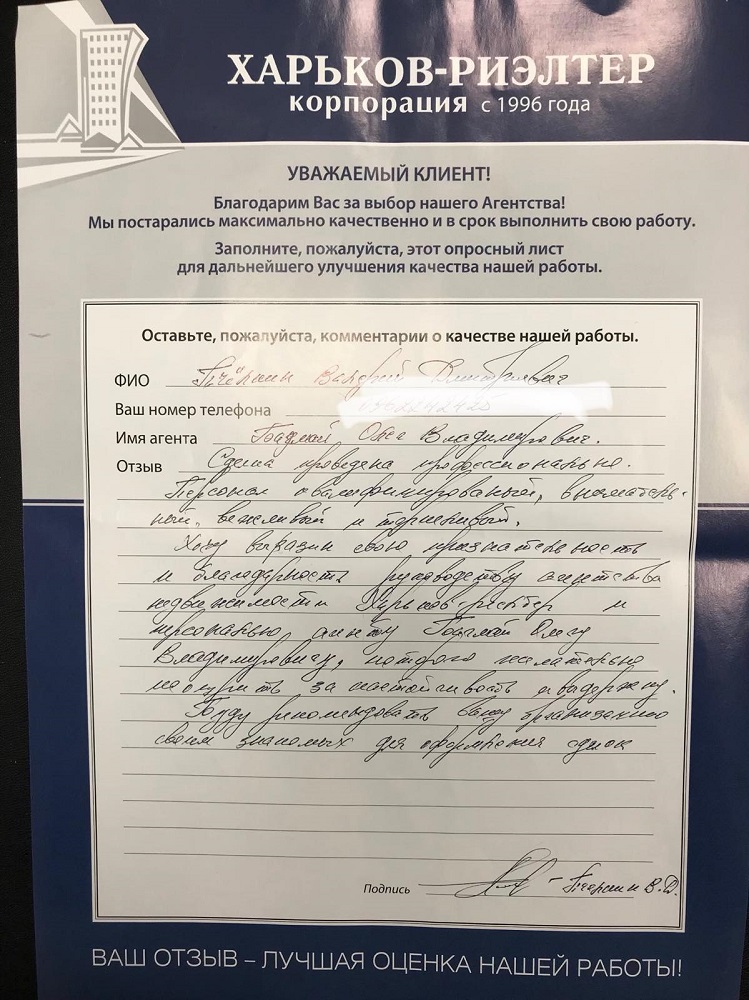 ХАРЬКОВ-РИЭЛТЕР
корпорация с 1996 года
УВАЖАЕМЫЙ КЛИЕНТ!
Благодарим Вас за выбор нашего Агентства!
Мы постарались максимально качественно и в срок выполнить свою работу.
Заполните, пожалуйста, этот опросный лист
для дальнейшего улучшения качества нашей работы.
Оставьте, пожалуйста, комментарии о качестве нашей работы.
ФИО Валерий Дмитриевич
Ваш номер телефона
Имя агента Олег Владимирович.
Отзыв Сделка проведена профессионально.
Персонал квалифицированый, вниматель-
ный, вежливый и терпеливый.
Хочу выразить свою признательность
и благодарность руководству агентства
недвижимости Харьков-риэлтер и
персонально агенту Олегу
Владимировичу, которого желательно
поощрить за настойчивость и выдержку.
Буду рекомендовать вашу организацию
своим знакомым для оформления сделок
Подпись В.Д.
ВАШ ОТЗЫВ – ЛУЧШАЯ ОЦЕНКА НАШЕЙ РАБОТЫ!